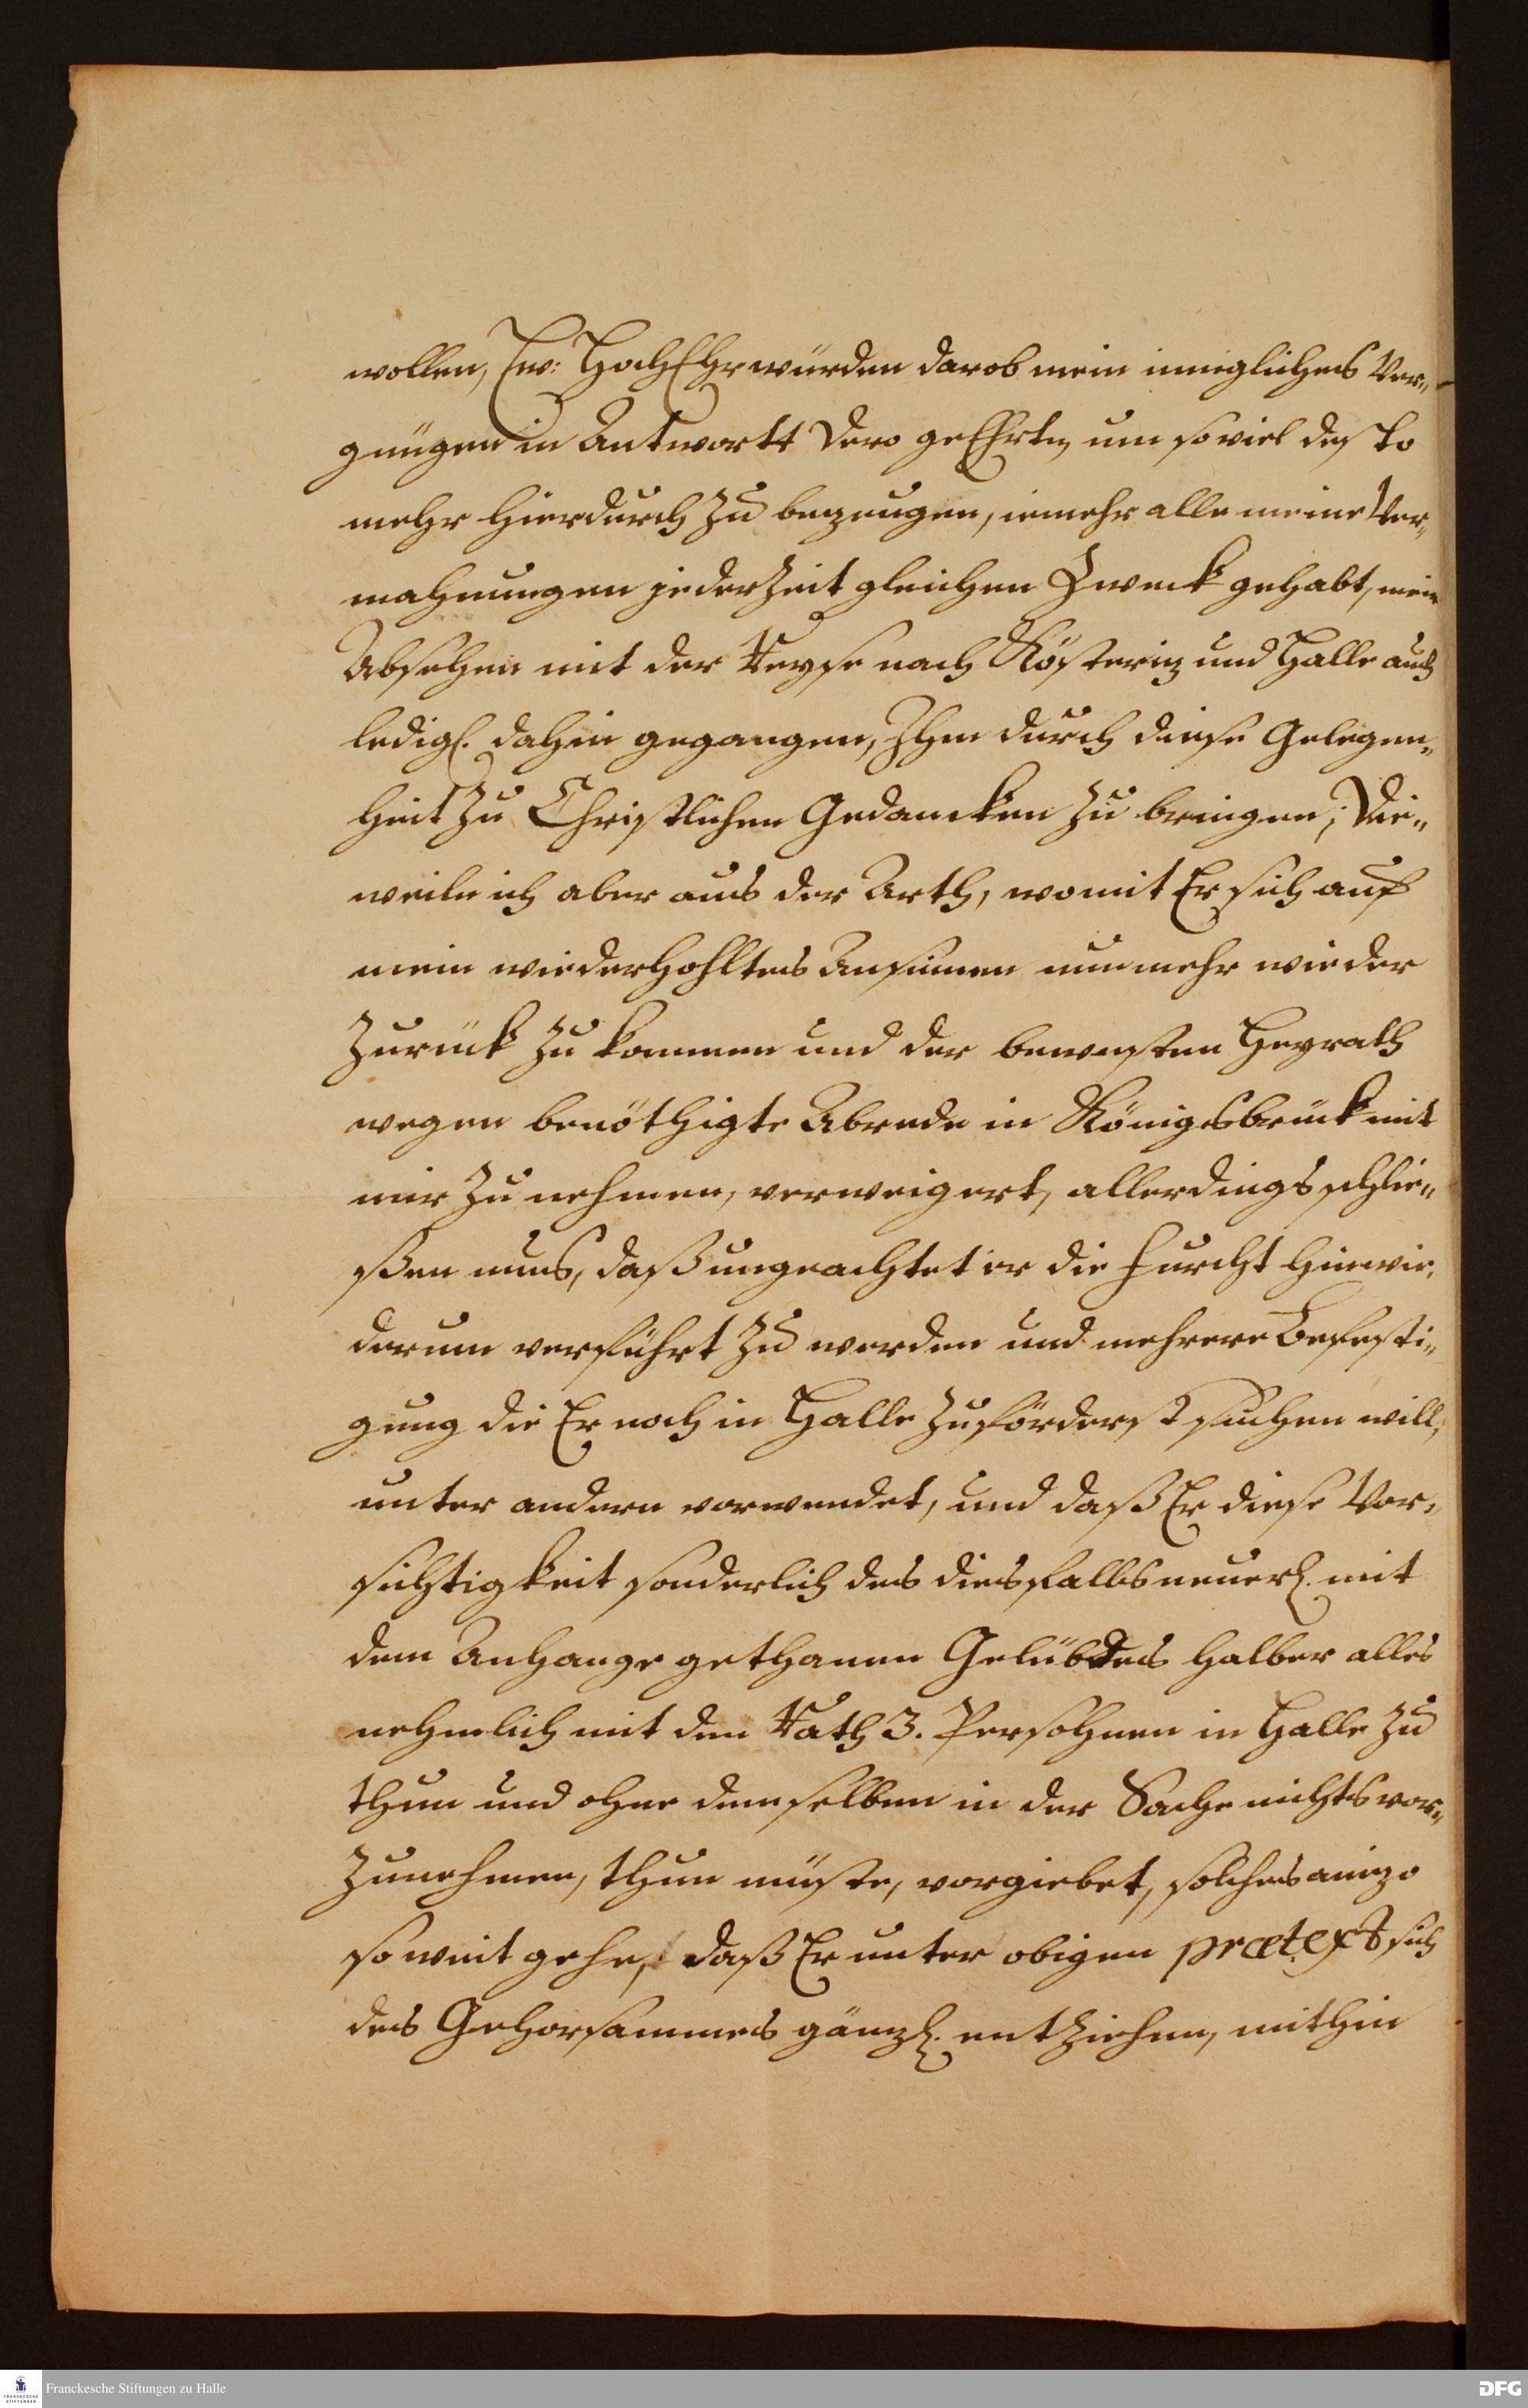 wollen, Ew: HochEhrwürden darob mein innigliches Ver-
gnügen in Antwortt Dero geEhrten um so viel desto
mehr hierdurch zu bezeugen, iemehr alle meine Ver-
mahnungen jederzeit gleichen Zweck gehabt, mein
Absehen mit der Reyse nach Kösteritz und Halle auch
ledigl. dahin gegangen, Ihm durch diese Gelegen-
heit zu Christlichen Gedancken zu bringen; Die-
weile ich aber aus der Arth, womit Er sich auf
mein wiederhohltes Ansinnen nunmehr wieder
zurück zu kommen und der bewusten Heyrath
wegen benöthigte Abrede in Königsbrück mit
mir zu nehmen, verweigert, allerdings schlie-
ßen mus, daß ungeachtet er die Furcht hinwie-
derum verführt zu werden und mehrere Befesti-
gung die Er noch in Halle zuförderst suchen will,
unter andern vorwendet, und daß Er diese Vor-
sichtigkeit sonderlich des diesfalls neuerl. mit
dem Anhange gethanen Gelübdes halber alles
nehmlich mit den Rath 3. Persohnen in Halle zu
thun und ohne demselben in der Sache nichts vor-
zunehmen, thun müste, vorgiebet, solches anizo
so weit gehe, daß Er unter obigen prætext sich
des Gehorsammes gänzl. entziehen, mithin
Franckesche Stiftungen zu Halle
FRANCKESCHE
STIFTUNGEN
DFG